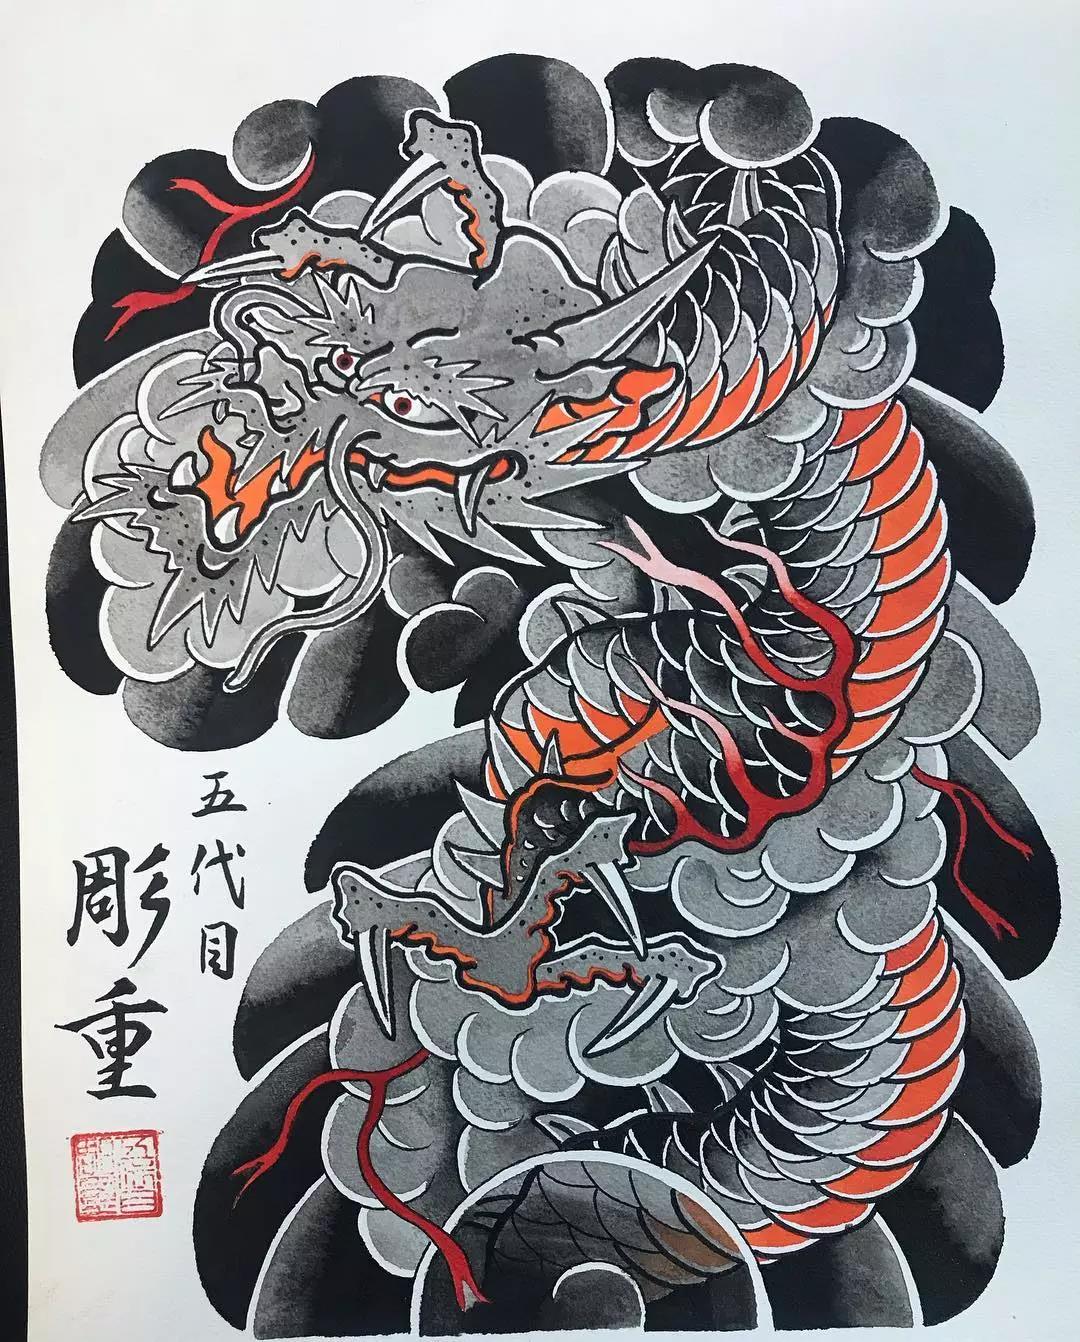 五代目
彫重